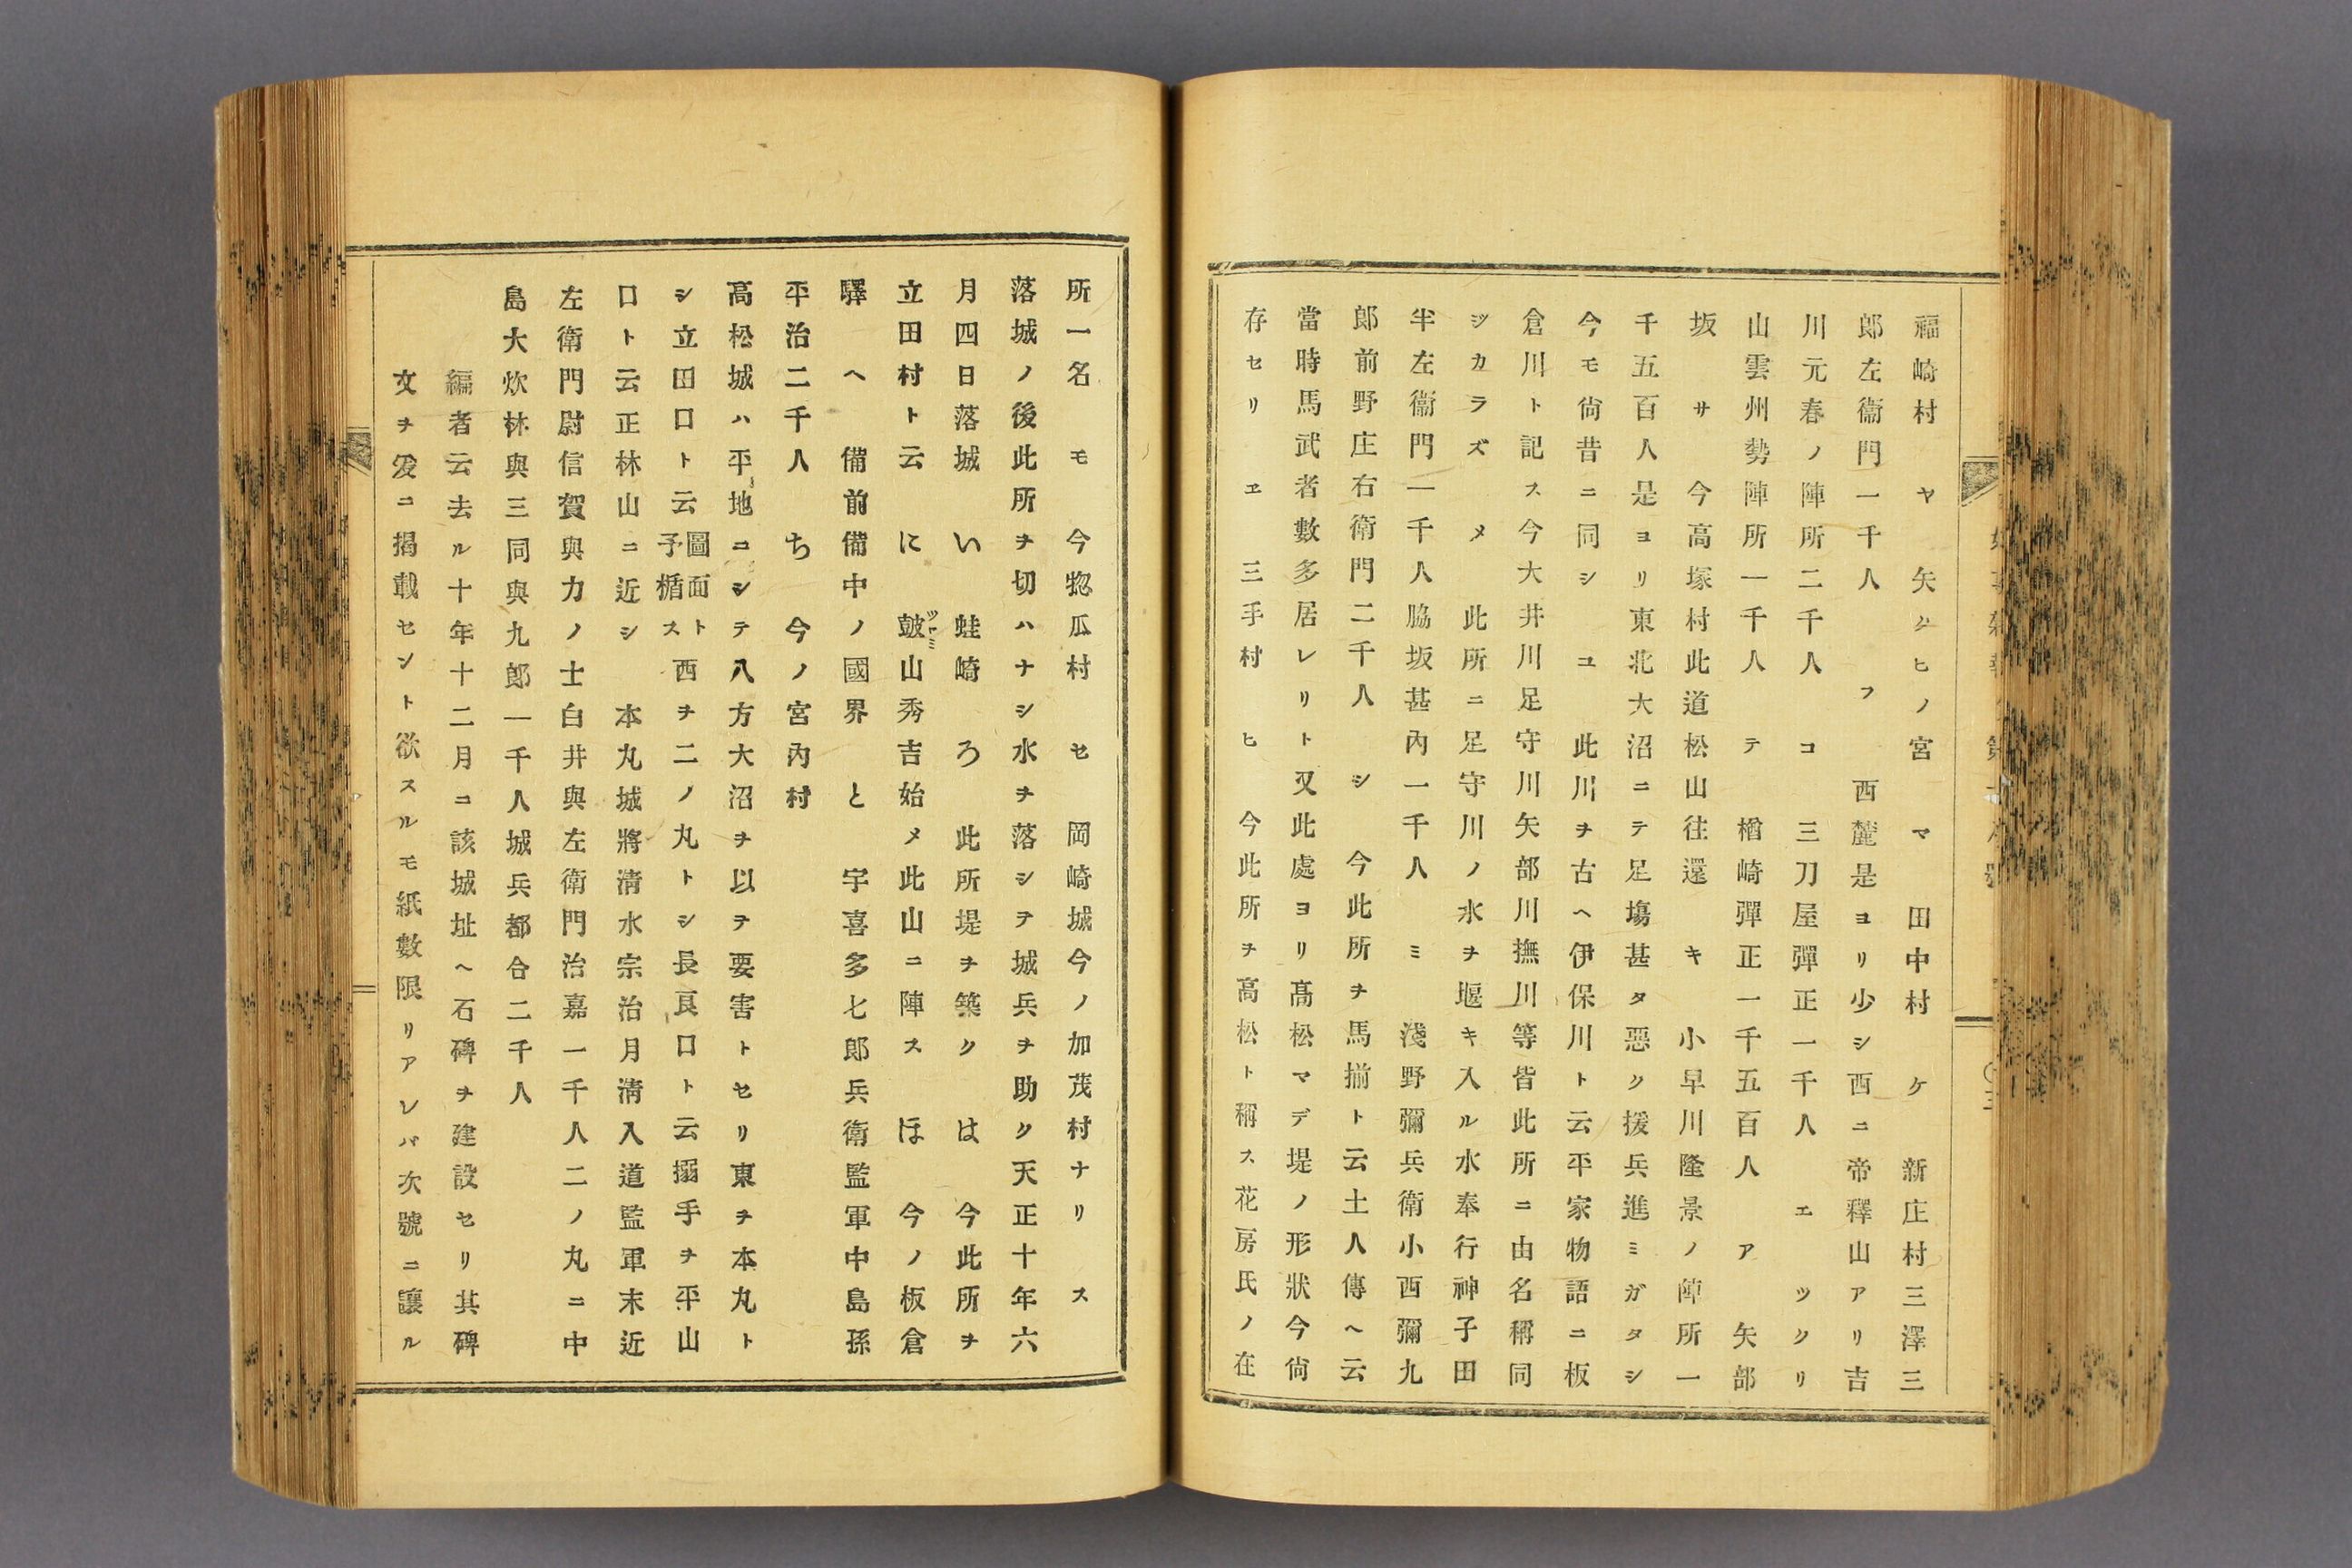 福崎村　ヤ　矢クヒノ宮　マ　田中村　ケ　新庄村三澤三
郎左衞門一千人　フ　西麓是ヨリ少シ西ニ帝釋山アリ吉
川元春ノ陣所二千人　コ　三刀屋彈正一千人　エ　ツクリ
山雲州勢陣所一千人　テ　楢崎彈正一千五百人　ア　矢部
坂　サ　今高塚村此道松山往還　キ　小早川隆景ノ陣所一
千五百人是ヨリ東北大沼ニテ足塲甚タ惡ク援兵進ミガタシ
今モ尙昔ニ同シ　ユ　此川ヲ古ヘ伊保川ト云平家物語ニ板
倉川ト記ス今大井川足守川矢部川撫川等皆此所ニ由名稱同
シカラズ　メ　此所ニ足守川ノ水ヲ堰キ入ル水奉行神子田
半左衞門一千人脇坂甚內一千人　ミ　淺野彌兵衛小西彌九
郎前野庄右衛門二千人　シ　今此所ヲ馬揃ト云土人傳ヘ云
當時馬武者數多居レリト又此處ヨリ髙松マデ堤ノ形狀今尙
存セリ　ヱ　三手村　ヒ　今此所ヲ高松ト稱ス花房氏ノ在
所一名　モ　今惣瓜村　セ　岡崎城今ノ加茂村ナリ　ス
落城ノ後此所ヲ切ハナシ水ヲ落シテ城兵ヲ助ク天正十年六
月四日落城　い　蛙崎　ろ　此所堤ヲ築ク　は　今此所ヲ
立田村ト云　に　皷山秀吉始メ此山ニ陣ス　ほ　今ノ板倉
驛　へ　備前備中ノ國界　と　宇喜多七郎兵衛監軍中島孫
平治二千人　ち　今ノ宮內村
高松城ハ平地ニシテ八方大沼ヲ以テ要害トセリ東ヲ本丸ト
シ立田口ト云圖面ト予楯ス西ヲ二ノ丸トシ長良口ト云搦手ヲ平山
口ト云正林山ニ近シ　本丸城將淸水宗治月淸入道監軍末近
左衛門尉信賀與力ノ士白井與左衛門治嘉一千人二ノ丸ニ中
島大炊林與三同與九郎一千人城兵都合二千人
編者云去ル十年十二月コ該城址ヘ石碑ヲ建設セリ其碑
文ヲ爰ニ揭載セント欲スルモ紙數限リアレバ次號ニ讓ル